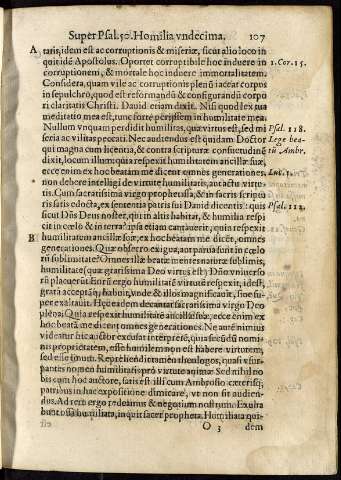 Super Psal. 50. Homilia vndecima. 107
A taris, idem est ac corruptionis & miseriæ, sicut alio loco in
quit idē Apostolus. Oportet corruptibile hoc induere in 1. Cor. 15.
corruptionem, & mortale hoc induere immortalitatem.
Considera, quam vile ac corruptionis plenū iaceat corpus
in sepulchro, quod est reformandū & configurandū corpo
ri claritatis Christi. Dauid etiam dixit. Nisi quod lex tua
meditatio mea est, tunc forte perijssem in humilitate mea.
Nullum vnquam perdidit humilitas, quæ virtus est, sed mi Psal. 118.
seria ac vilitas peccati. Nec audiendus est quidam Doctor Lege bea
qui magna cum licentia, & contra scripturæ consuetudinē tū Ambr.
dixit, locum illum: quia respexit humilitatem ancillæ suæ,
ecce enim ex hoc beatam me dicent omnes generationes, Luc. 1.
non debere intelligi de virtute humilitatis, aut actu virtu-
tis. Cum sacratissima virgo prophetissa, & in sacris scriptu
ris satis edocta, ex sententia patris sui Dauid dicentis: quis Psal. 112.
sicut Dñs Deus noster, qui in altis habitat, & humilia respi
cit in cœlo & in terra? ipsa etiam cantauerit, quia respexit
B humilitatem ancillæ suæ, ex hoc beatam me dicēt, omnes
generationes. Quia obsecro exigua, aut parua sunt in cœlo
rū sublimitate? Omnes illæ beatæ mentes natura sublimis,
humilitate (quæ gratissima Deo virtus est) Dño vniuerso
rū placuerūt. Eorū ergo humilitatē virtutē respexit, id est,
gratā acceptāq; habuit, vnde & illos magnificauit, siue su-
per exaltauit. Hęc eadem decantat sacratissima virgo Deo
plena: Quia respexit humilitatē ancillæ suæ, ecce enim ex
hoc beatā me dicent omnes generationes. Ne autē nimius
videatur hic auctor excusat interpres, quia secūdū nomi-
nis proprietatem, esse humilem non est habere virtutem,
sed esse imum. Reprehendit tamen theologos, quasi vsur-
pantes nomen humilitatis pro virtute animæ. Sed nihil no
bis cum hoc auctore, satis est illi cum Ambrosio cæterisq;
patribus in hac expositione dimicare, vt non sit audien-
dus. Ad rem ergo redeamus & negotium nostrum. Exulta
bunt ossa humiliata, inquit sacer propheta. Humiliata qui-
O 3 dem